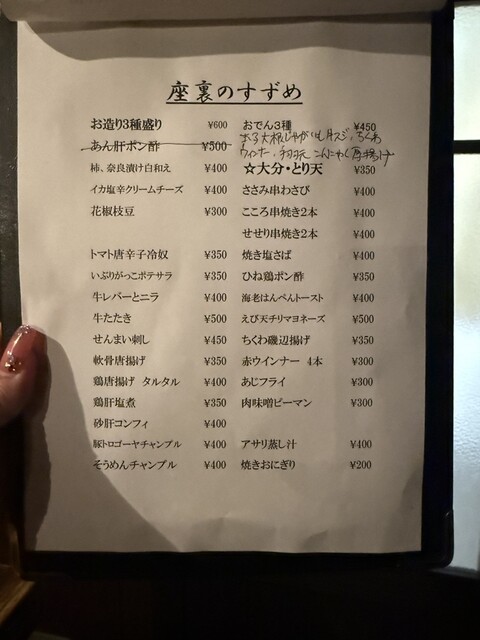 座裏のすずめ
お造り3種盛り ¥600
あん肝ポン酢 ¥500
柿、奈良漬け白和え ¥400
イカ塩辛クリームチーズ ¥400
花椒枝豆 ¥300
トマト唐辛子冷奴 ¥350
いぶりがっこポテサラ ¥350
牛レバーとニラ ¥400
牛たたき ¥500
せんまい刺し ¥450
軟骨唐揚げ ¥350
鶏唐揚げ タルタル ¥400
鶏肝塩煮 ¥350
砂肝コンフィ ¥400
豚トロゴーヤチャンプル ¥400
そうめんチャンプル ¥400
おでん3種 ¥450
大根 じゃがいも 牛スジ、ちくわ
ウィンナー、こんにゃく 厚揚げ
☆大分・とり天 ¥350
ささみ串わさび ¥400
こころ串焼き2本 ¥400
せせり串焼き2本 ¥400
焼き塩さば ¥400
ひね鶏ポン酢 ¥350
海老はんぺんトースト ¥400
えび天チリマヨネーズ ¥500
ちくわ磯辺揚げ ¥300
赤ウインナー 4本 ¥300
あじフライ ¥300
肉味噌ピーマン ¥300
アサリ蒸し汁 ¥400
焼きおにぎり ¥200